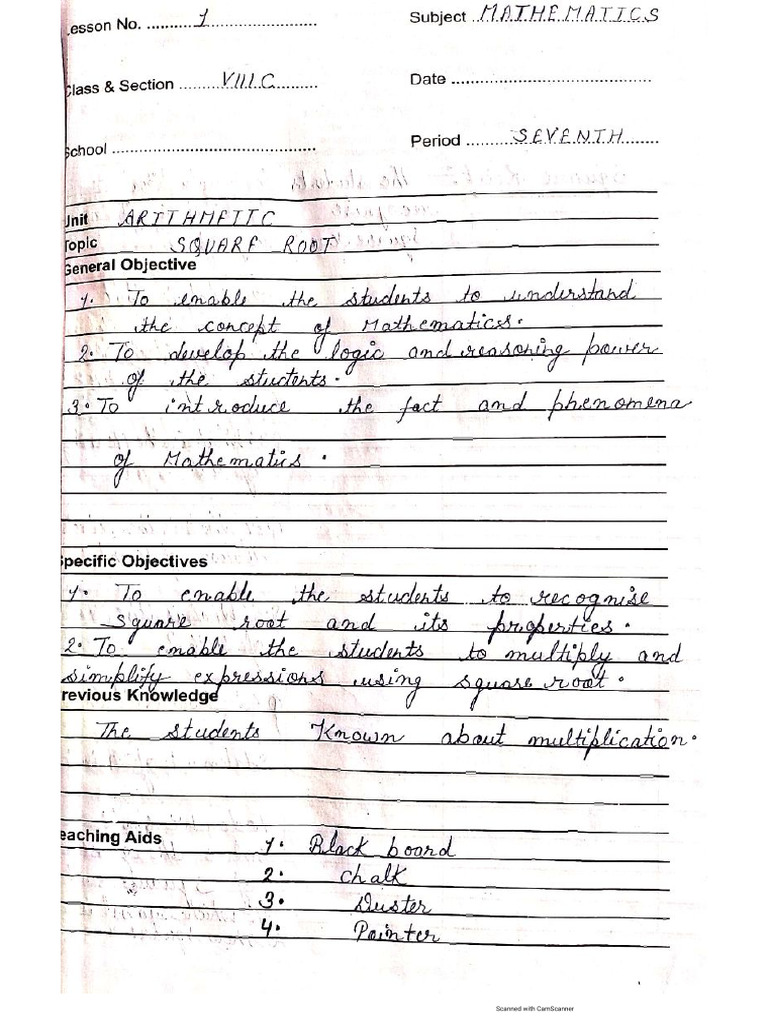 Lesson No. .......... 1 ............................ Subject .. MATHEMATICS
Class & Section ......... VIII C ......... Date ..................................................
School .................................................. Period ............ SEVENTH ........
Unit ARITHMETIC
Topic SQUARE ROOT
General Objective
1. To enable the students to understand
the concept of Mathematics.
2. To develop the logic and reasoning power
of the students.
3. To introduce the fact and phenomena
of Mathematics.
Specific Objectives
1. To enable the students to recognise
square root and its properties.
2. To enable the students to multiply and
simplify expressions using square root.
Previous Knowledge
The students Known about multiplication.
Teaching Aids 1. Black board
2. chalk
3. Duster
4. Pointer
Scanned with CamScanner